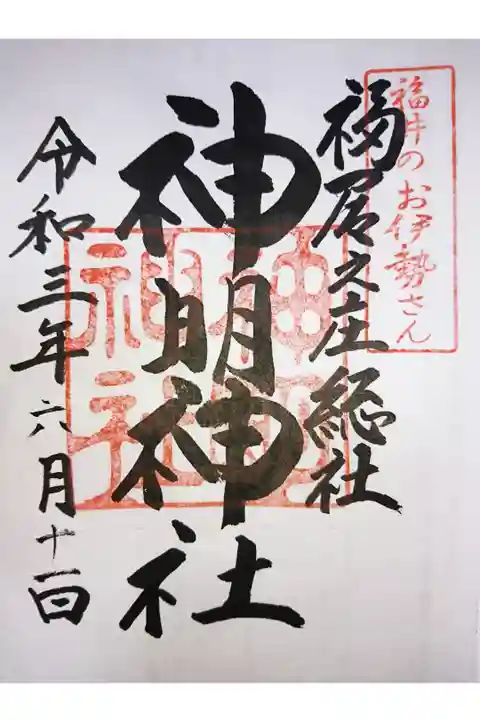 福井のお伊勢さん
福居之庄総社
神明神社
令和三年六月十一日
神明
神社